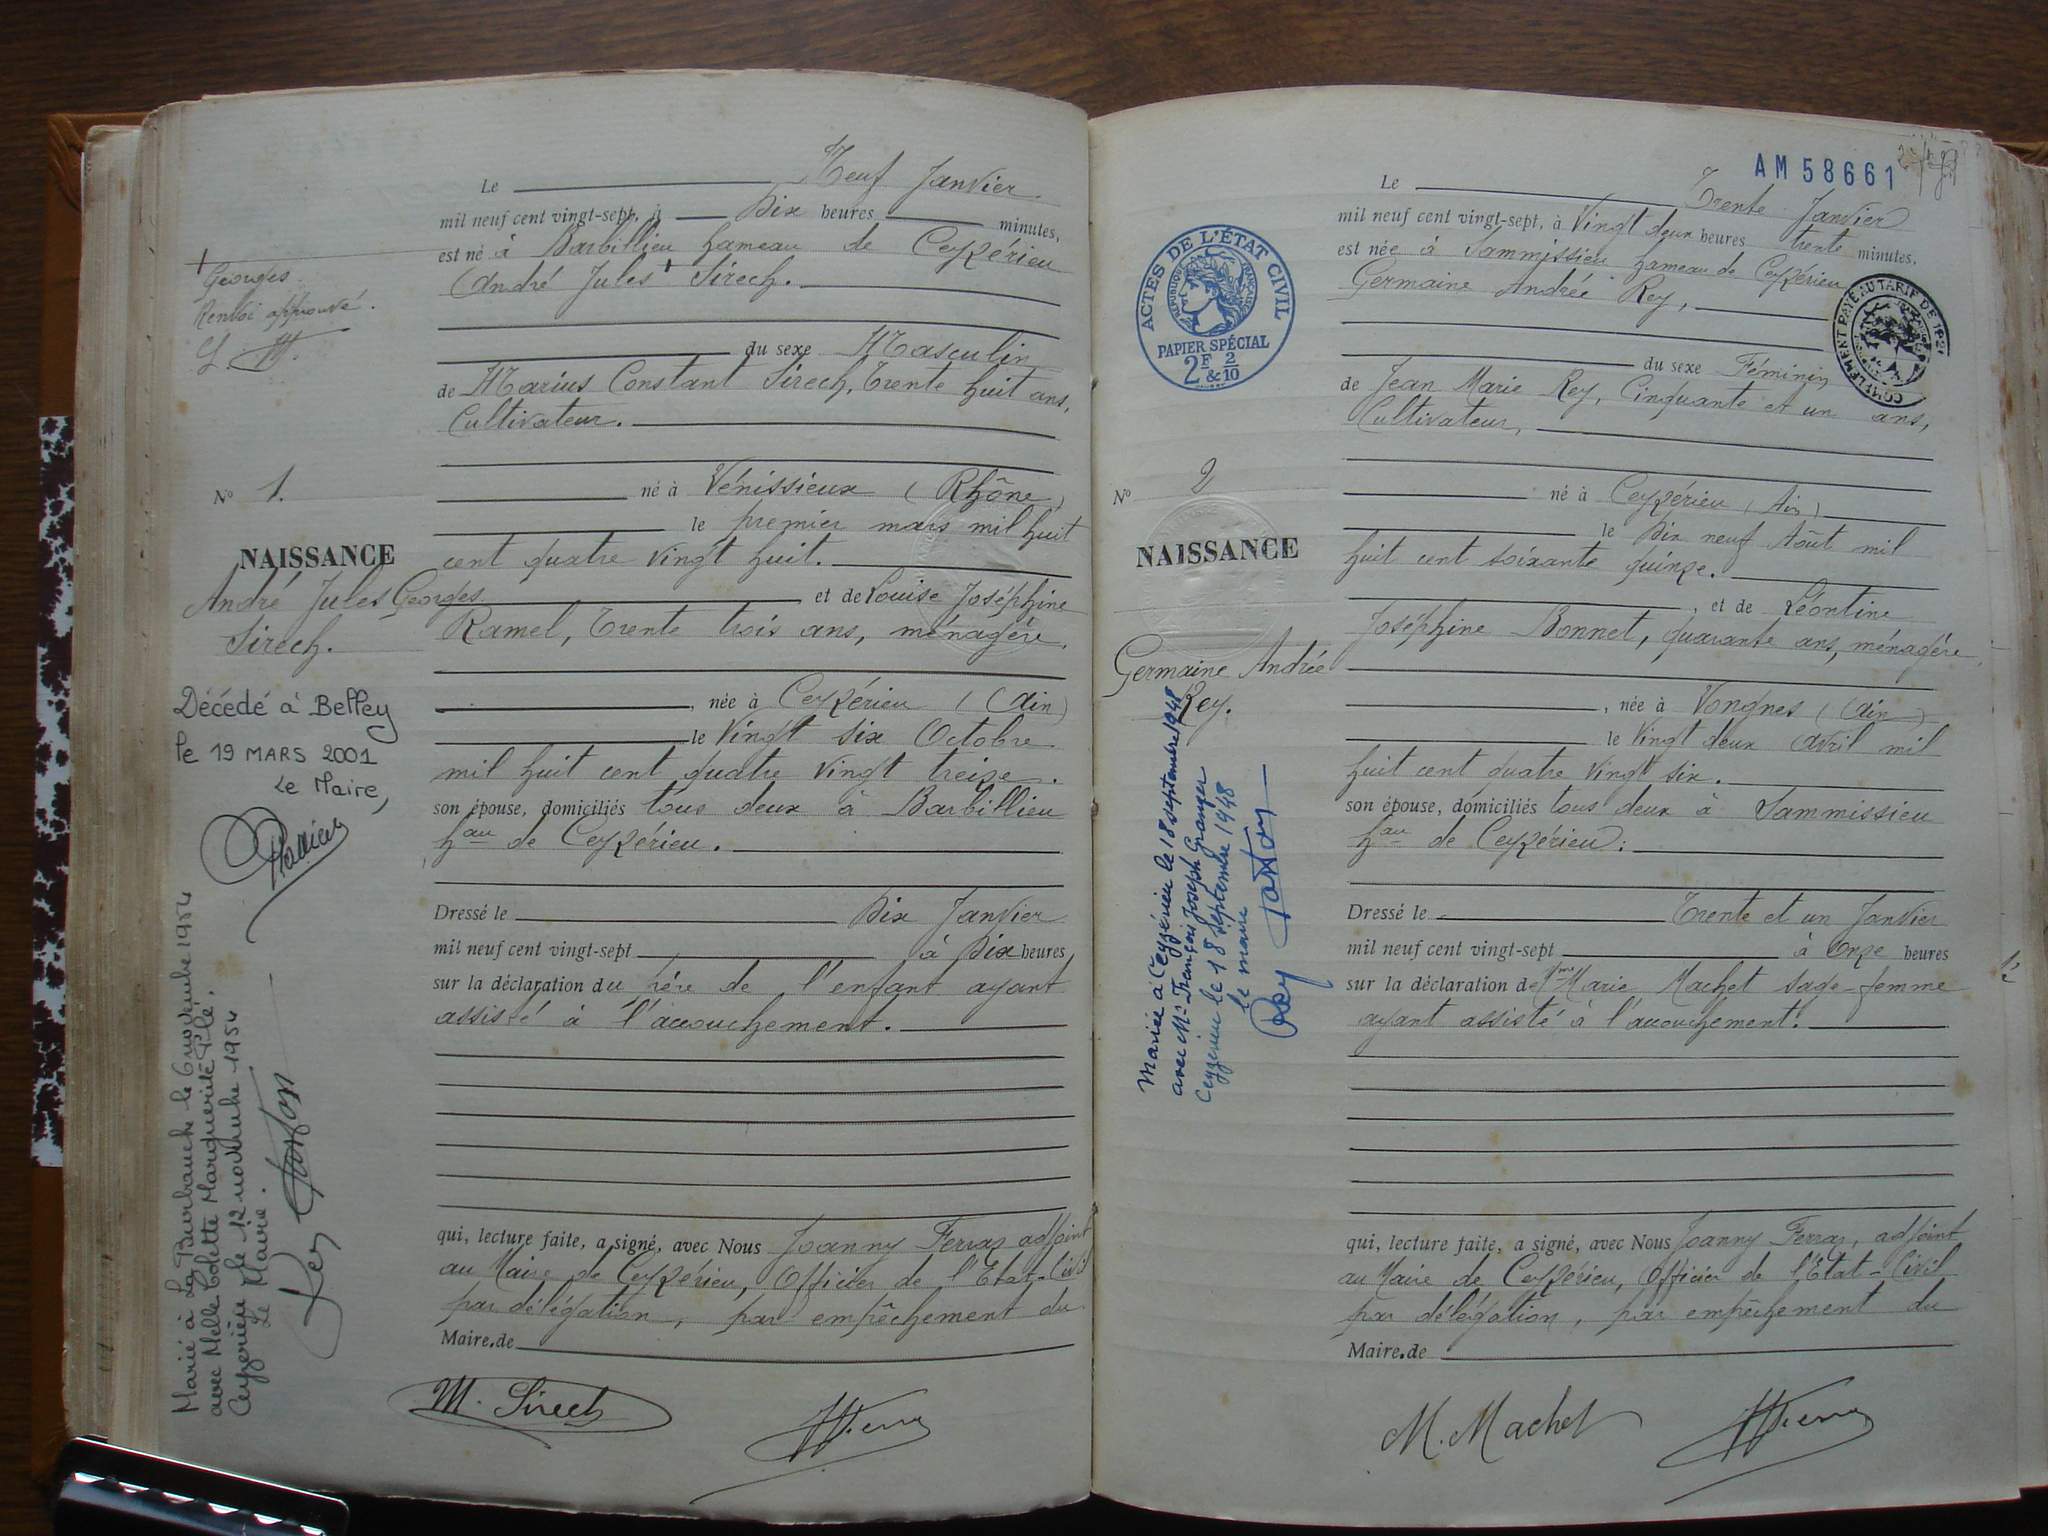 Le Neuf Janvier
mil neuf cent vingt-sept, à Dix heures minutes,
est né à Barbillieu hameau de Ceyzérieu
André Jules Sirech.
du sexe Masculin
de Marius Constant Sirech, Trente huit ans,
Cultivateur.
né à Vénissieux (Rhône)
le premier mars mil huit
cent quatre vingt huit.
et de Louise Joséphine
Ramel, Trente trois ans, ménagère.
, née à Ceyzérieu (Ain)
le Vingt six Octobre
mil huit cent quatre vingt treize.
son épouse, domiciliés tous deux à Barbillieu
hau de Ceyzérieu.
Dressé le Dix Janvier
mil neuf cent vingt-sept à Dix heures
sur la déclaration du père de l'enfant ayant
assisté à l'accouchement.
qui, lecture faite, a signé, avec Nous Joanny Ferraz adjoint
au Maire de Ceyzérieu, Officier de l'Etat-Civil
par délégation, par empêchement du
Maire.de
M. Sirech
Georges
Renvoi approuvé.
No 1.
NAISSANCE
André Jules Georges
Sirech.
Décédé à Belley
le 19 MARS 2001
Le Maire,
Marié à La Burbanche le 6 novembre 1954
avec Melle Colette Marguerite
Ceyzérieu le 12 novembre 1954
Le Maire.
AM 58661
Le Trente Janvier
mil neuf cent vingt-sept, à Vingt deux heures trente minutes.
est née à Sammissieu hameau de Ceyzérieu
Germaine Andrée Rey,
du sexe Féminin
de Jean Marie Rey, Cinquante et un ans,
Cultivateur,
né à Ceyzérieu (Ain)
le Dix neuf Août mil
huit cent soixante quinze.
, et de Léontine
Joséphine Bonnet, quarante ans, ménagère
, née à Vongnes (Ain)
le Vingt deux Avril mil
huit cent quatre vingt six.
son épouse, domiciliés tous deux à Sammissieu
hau de Ceyzérieu.
Dressé le Trente et un Janvier
mil neuf cent vingt-sept à Onze heures
sur la déclaration de Marie Machet sage-femme
ayant assisté à l'accouchement.
qui, lecture faite, a signé, avec Nous Joanny Ferraz, adjoint
au Maire de Ceyzérieu, Officier de l'Etat-Civil
par délégation, par empêchement du
Maire.de
M. Machet
ACTES DE L'ÉTAT CIVIL
RÉPUBLIQUE FRANÇAISE
PAPIER SPÉCIAL
2F & 2/10
COMPLÉMENT PAYÉ AU TARIF DE
No 2
NAISSANCE
Germaine Andrée
Rey.
Mariée à Ceyzérieu le 18 septembre 1948
avec Mr François Joseph Granger
Ceyzérieu le 18 septembre 1948
le maire